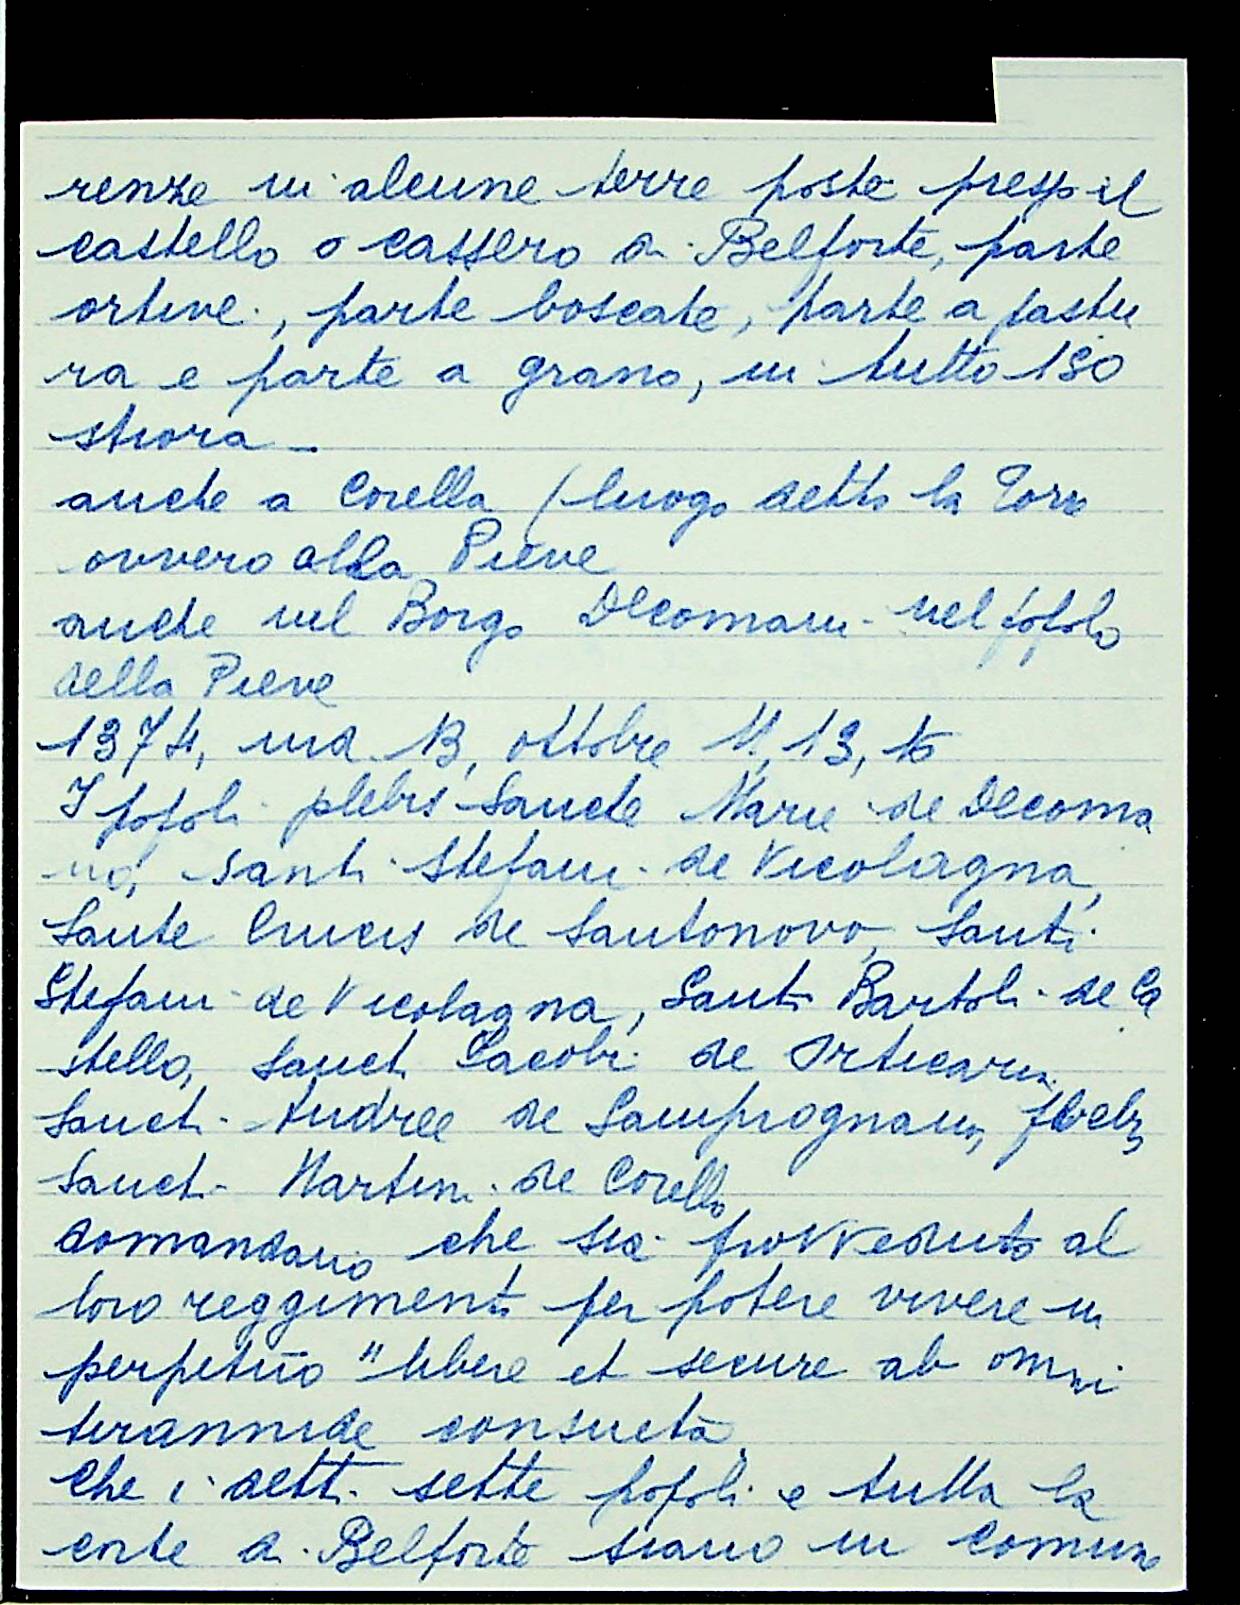 renze in alcune terre poste presso il
castello o cassero di Belforte, parte
ortive, parte boscate, parte a pastu
ra e parte a grano, in tutto 130
stiora -
anche a Corella (luogo detto la Torre
ovvero alla Pieve
anche nel Borgo Dicomani nel popolo
della Pieve
1374, ind. 13, ottobre 11, 13, 15
I popoli plebis Sancte Marie de Decoma
no, Santi Stefani de Vicolagna,
Sante Crucis de Santonovo, Santi
Stefani de Vicolagna, Santi Bartoli de Ca
stello, Sancti Iacobi de Orticaria,
Sancti Andree de Samprognano, plebis
Sancti Martini de Corella
domandano che sia provveduto al
loro reggimento per potere vivere in
perpetuo "libere et secure ab omni
tirannide consueta
Che i detti sette popoli e tutta la
corte di Belforte siano in comune